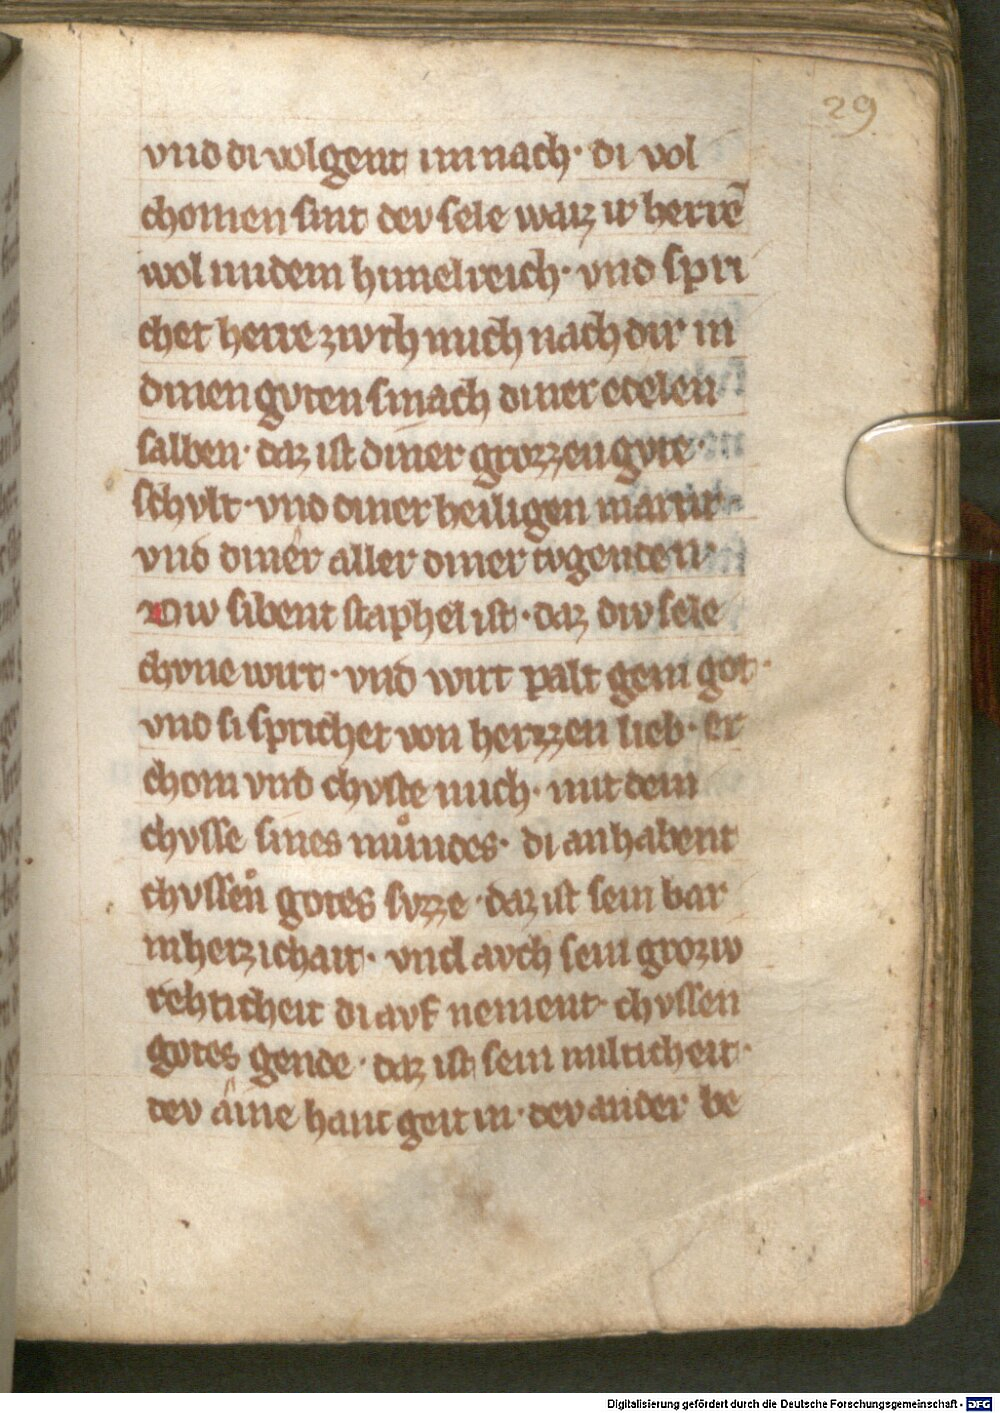 29
vnd di volgent im nach· di vol
chomen sint dev sele waiz ir herrē
wol in dem himelreich· vnd spri
chet herre zivch mich nach dir in
dinen gvten smach diner edelen
salben· daz ist diner grozzen gvte·
schvlt· vnd diner heiligen martir
vnd diner aller diner tvgenden
Div sibent staphel ist· daz div sele
chvne wirt· vnd wirt palt gein got·
vnd si sprichet von herzzen lieb· er
chom vnd chvste mich· mit dem
chvsse sines můndes· di anhabent
chvssen gotes fvzze· daz ist sein bar
mherzichait· vnd avch sein grozw
rehticheit di avf nement· chvssen
gotes hende· daz ist sein milticheit·
dev äine hant geit in· dev ander be
Digitalisierung gefördert durch die Deutsche Forschungsgemeinschaft - DFG